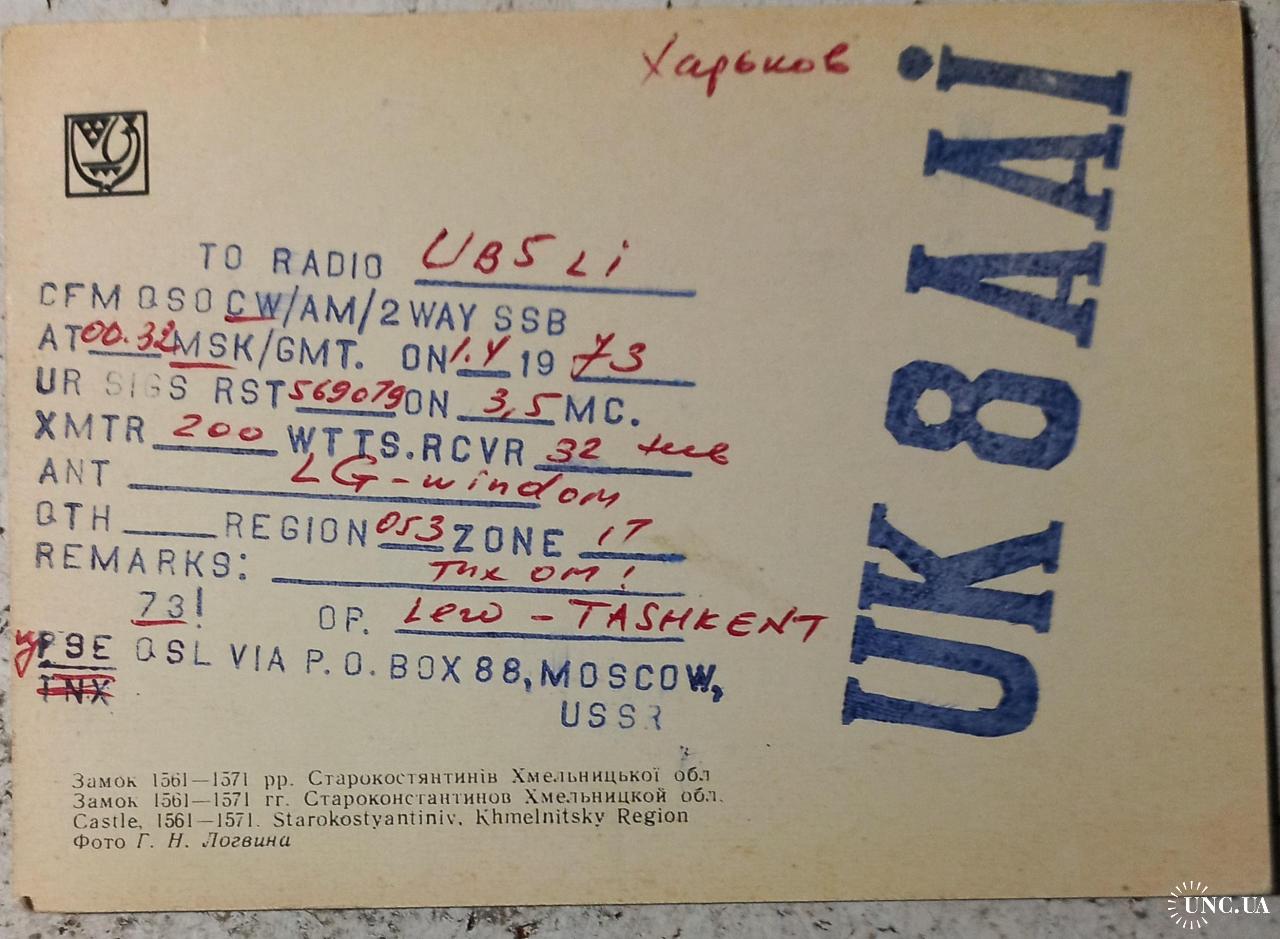 Харьков
UK8AAi
TO RADIO UB5Li
CFM QSO CW/AM/2 WAY SSB
AT 00.32 MSK/GMT. ON 1.V 1973
UR SIGS RST 569079 ON 3,5 MC.
XMTR 200 WTTS. RCVR 32
ANT LG-windom
QTH REGION 053 ZONE 17
REMARKS: TNX OM!
73! OP. Lew - TASHKENT
PSE QSL VIA P.O. BOX 88, MOSCOW,
TNX USSR
Замок 1561—1571 рр. Старокостянтинів Хмельницької обл
Замок 1561—1571 гг. Староконстантинов Хмельницкой обл.
Castle, 1561—1571. Starokostyantiniv, Khmelnitsky Region
Фото Г. Н. Логвина
UNC.UA